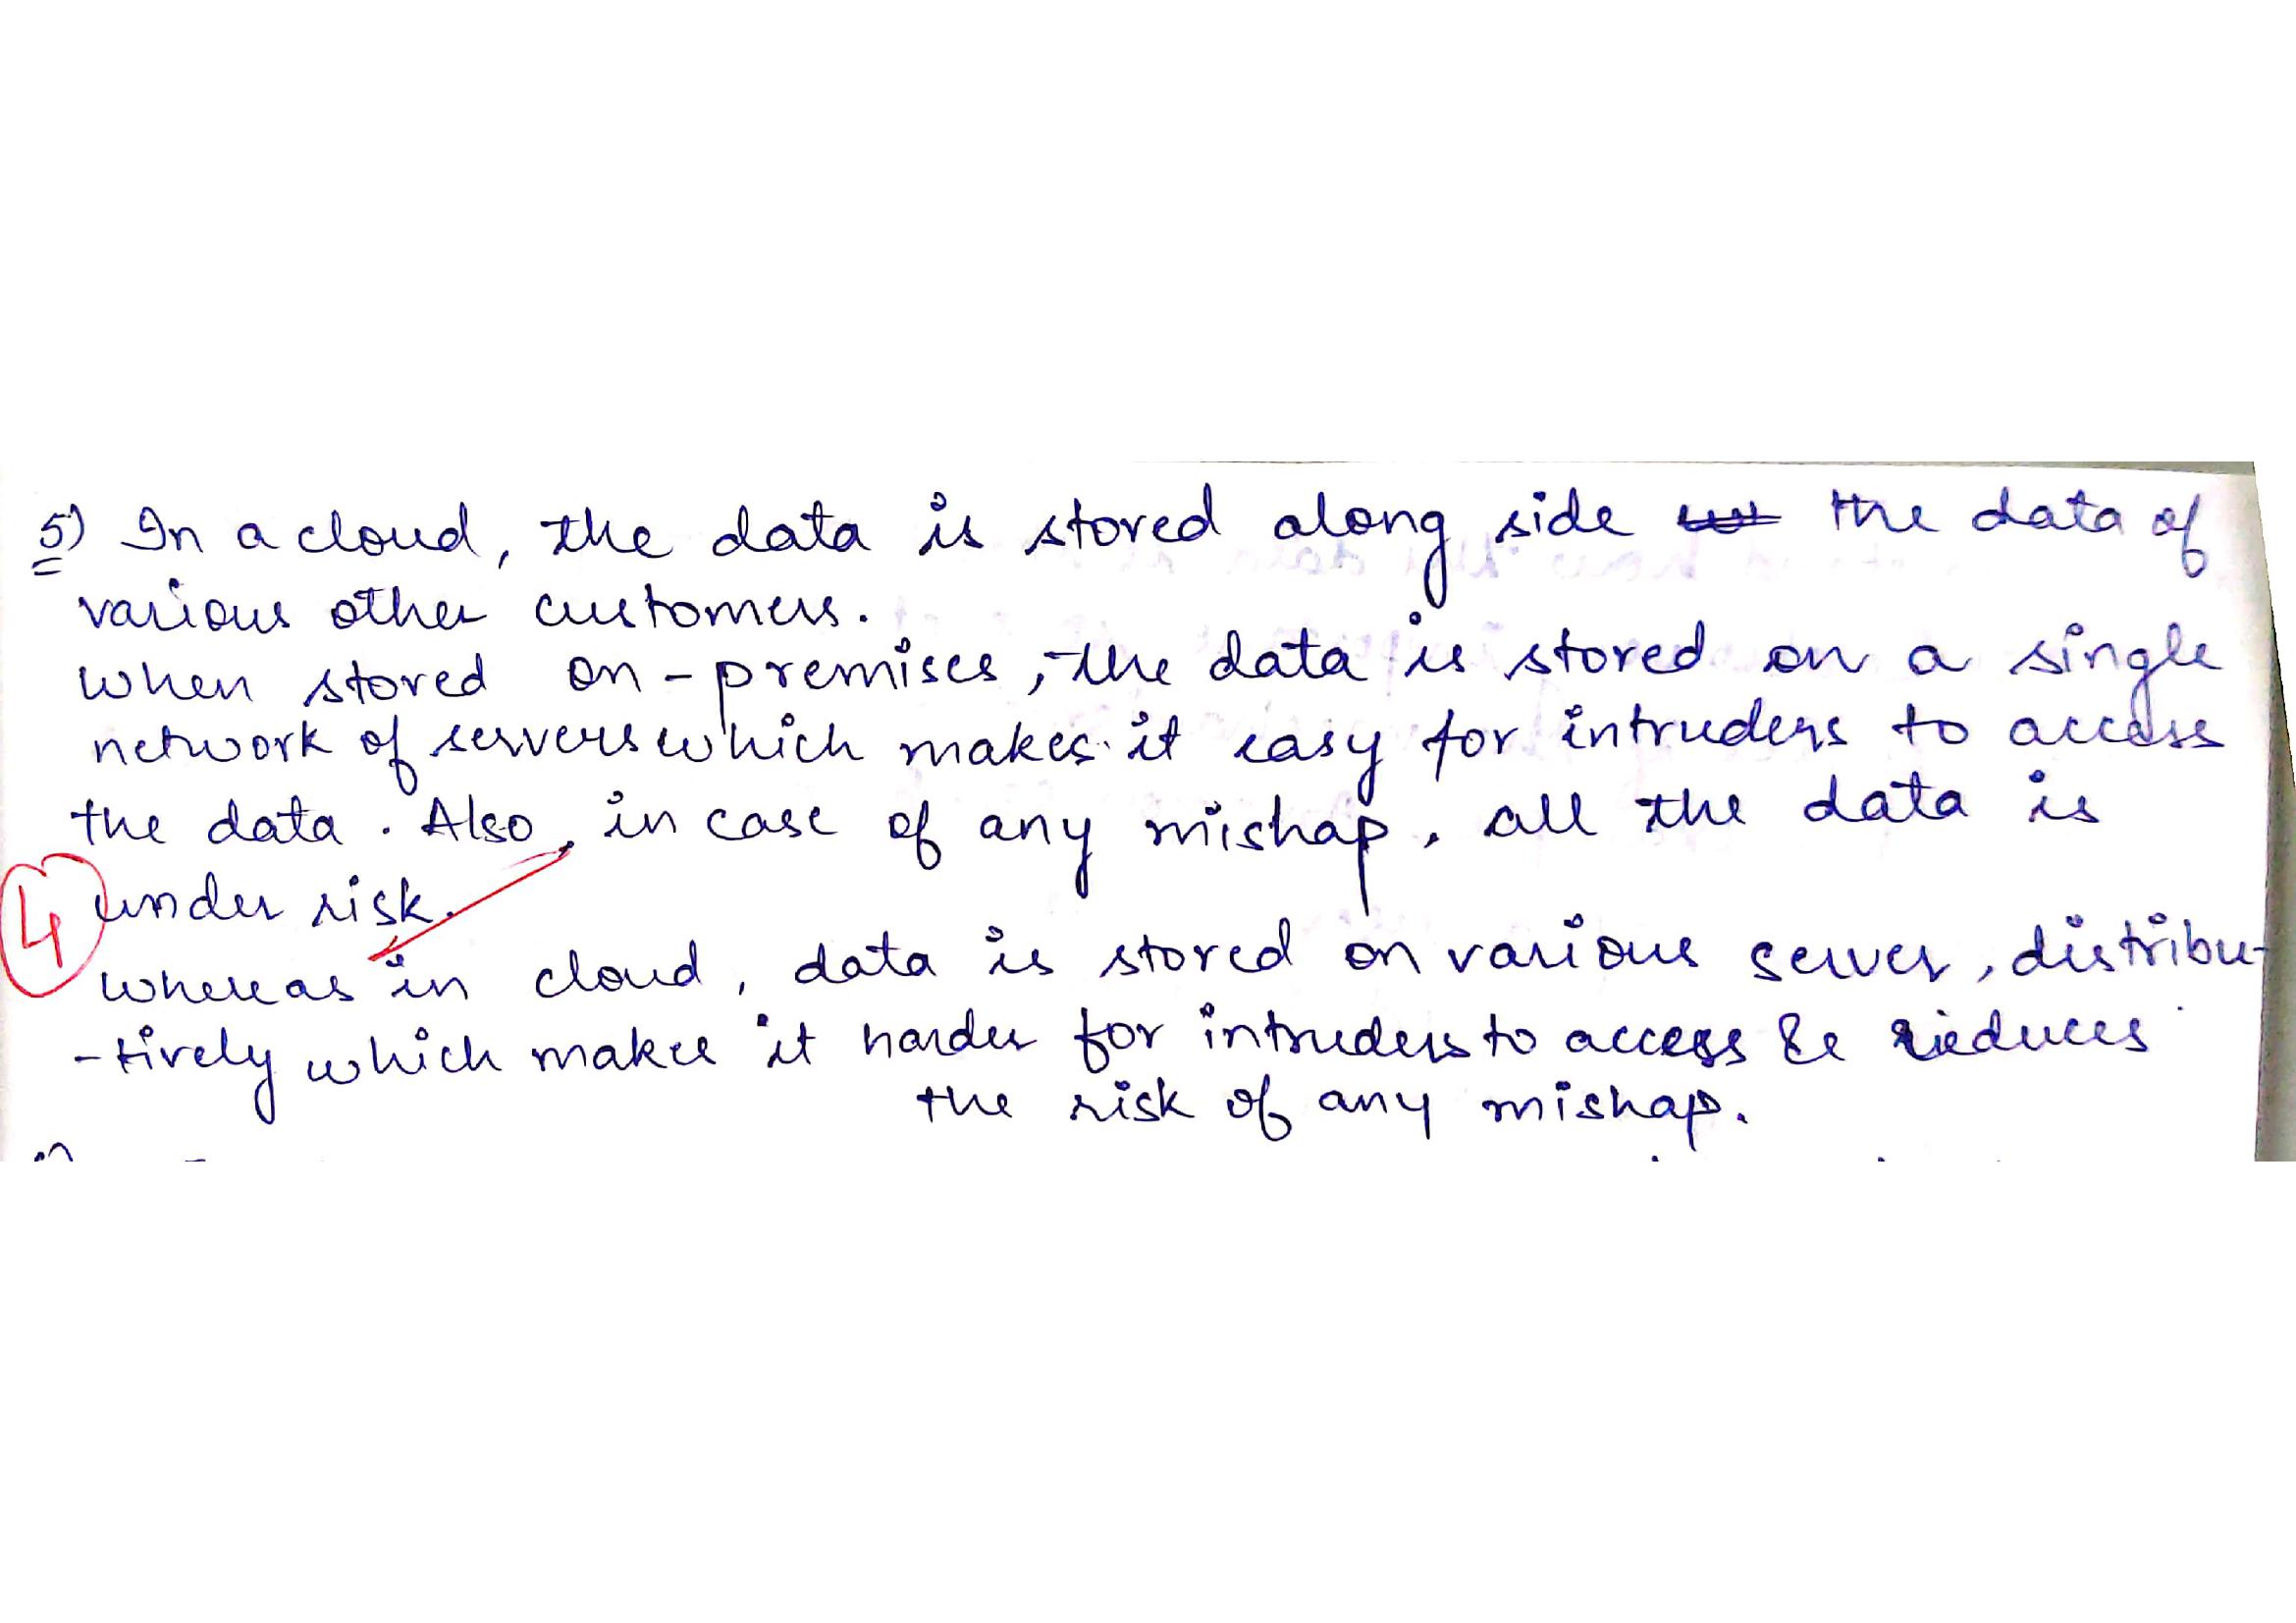 5) In a cloud, the data is stored along side the data of
various other customers.
when stored on-premises, the data is stored on a single
network of servers which makes it easy for intruders to access
the data. Also, in case of any mishap, all the data is
4 under risk.
whereas in cloud, data is stored on various server, distribu-
-tively which makes it harder for intruders to access & reduces
the risk of any mishap.